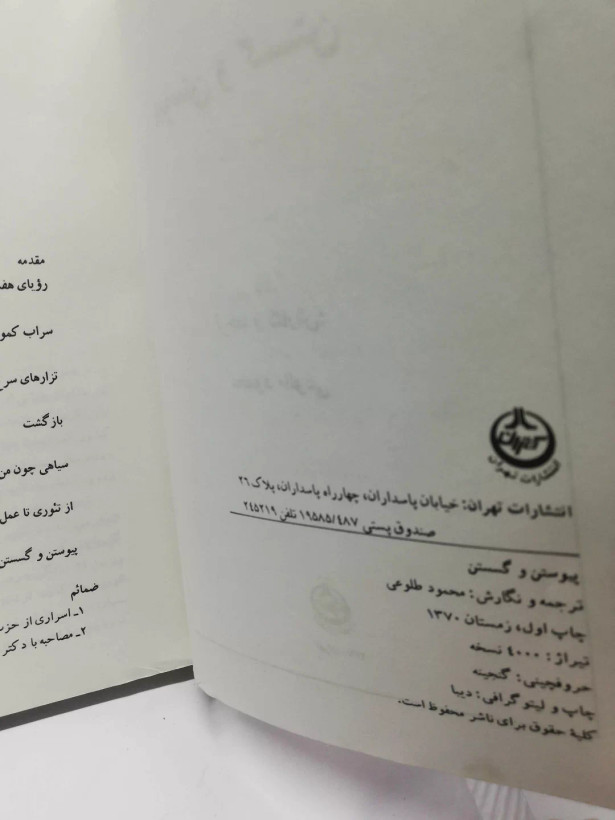 تهران
انتشارات تهران
انتشارات تهران: خیابان پاسداران، چهارراه پاسداران، پلاک ۲۶
صندوق پستی ۱۹۵۸۵/۴۸۷ تلفن ۲۴۵۲۱۹
پیوستن و گسستن
ترجمه و نگارش: محمود طلوعی
چاپ اول، زمستان ۱۳۷۰
تیراژ: ۴۰۰۰ نسخه
حروفچینی: گنجینه
چاپ و لیتوگرافی: دیبا
کلیهٔ حقوق برای ناشر محفوظ است.
مقدمه
رؤیای
سراب
تزارهای
بازگشت
سیاهی چون
از تئوری تا عمل
پیوستن و گسستن
ضمائم
۱ـ اسراری از
۲ـ مصاحبه با دکتر